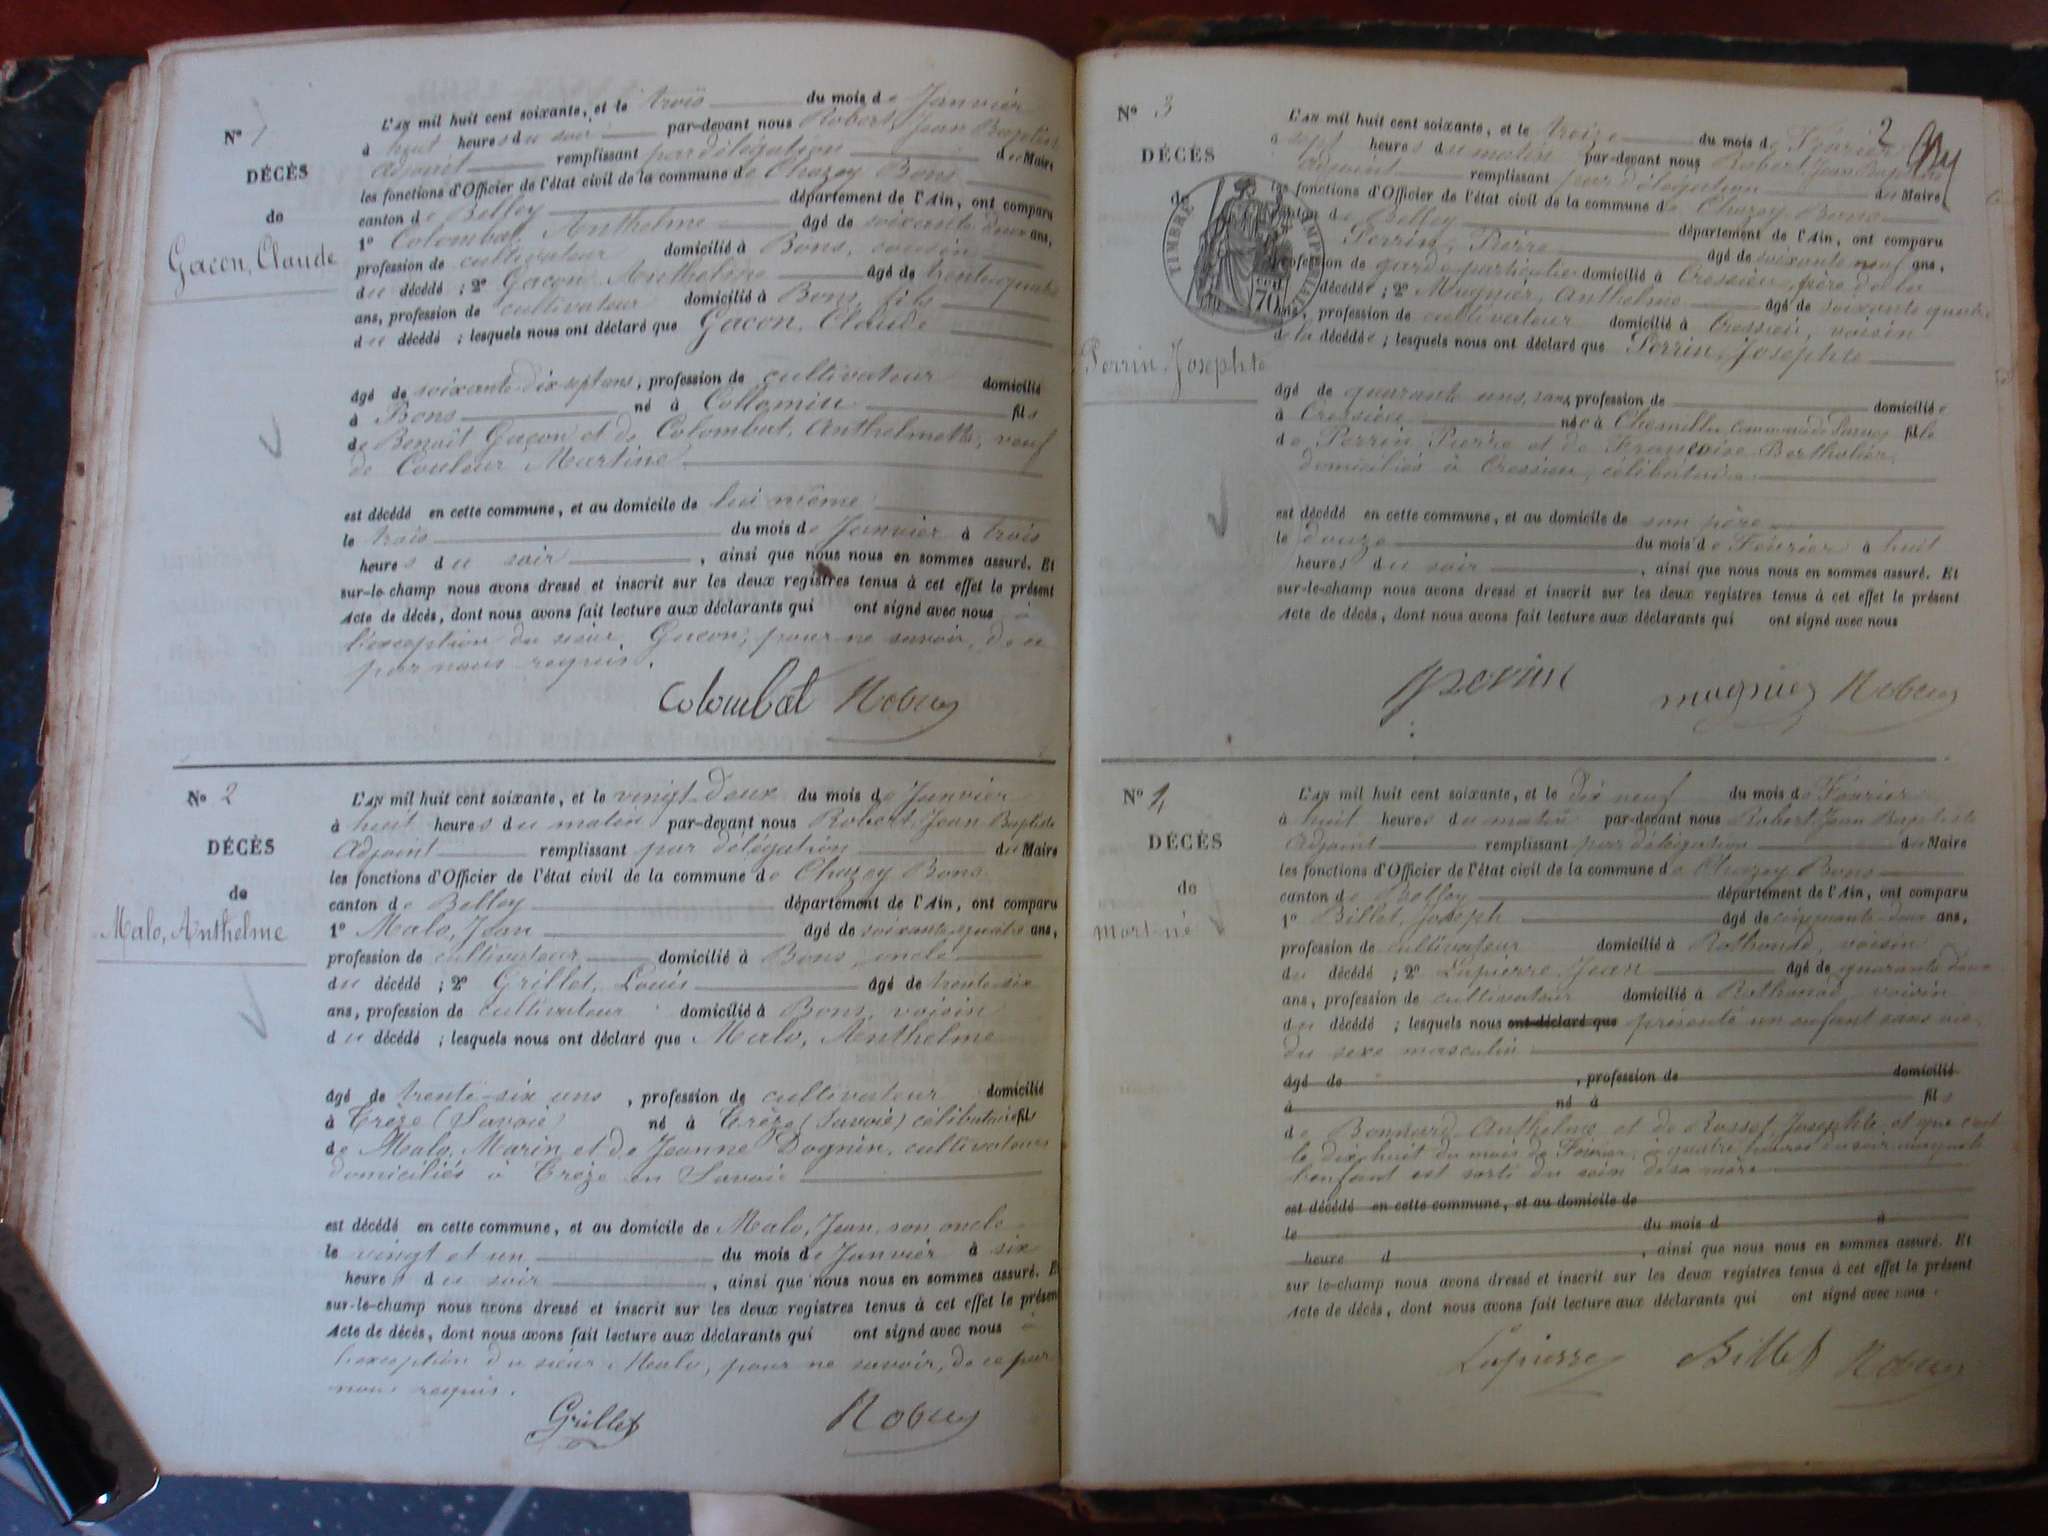 N° 1
DÉCÈS
de
Gacon, Claude
L'AN mil huit cent soixante, et le trois du mois de Janvier
à huit heures du soir par-devant nous Robert, Jean Baptiste
Adjoint remplissant par délégation du Maire
les fonctions d'Officier de l'état civil de la commune de Chazey Bons
canton de Belley département de l'Ain, ont comparu
1° Colombat, Anthelme âgé de soixante deux ans,
profession de cultivateur domicilié à Bons, cousin
du décédé ; 2° Gacon Anthelme âgé de trente quatre
ans, profession de cultivateur domicilié à Bons, fils
du décédé ; lesquels nous ont déclaré que Gacon, Claude
âgé de soixante-dix sept ans, profession de cultivateur domicilié
à Bons né à Collomieu fils
de Benoit Gacon et de Colombat, Anthelmette, veuf
de Couleur Martine
est décédé en cette commune, et au domicile de lui même
le trois du mois de Janvier à trois
heures du soir , ainsi que nous nous en sommes assuré. Et
sur-le-champ nous avons dressé et inscrit sur les deux registres tenus à cet effet le présent
Acte de décès, dont nous avons fait lecture aux déclarants qui ont signé avec nous à
l'exception du sieur Gacon, pour ne savoir, de ce
par nous requis.
Colombat Robert
N° 2
DÉCÈS
de
Malo, Anthelme
L'AN mil huit cent soixante, et le vingt-deux du mois de Janvier
à huit heures du matin par-devant nous Robert, Jean Baptiste
Adjoint remplissant par délégation du Maire
les fonctions d'Officier de l'état civil de la commune de Chazey Bons
canton de Belley département de l'Ain, ont comparu
1° Malo, Jean âgé de soixante-quatre ans,
profession de cultivateur domicilié à Bons, oncle
du décédé ; 2° Grillet, Louis âgé de trente-six
ans, profession de cultivateur domicilié à Bons, voisin
du décédé ; lesquels nous ont déclaré que Malo, Anthelme
âgé de trente-six ans , profession de cultivateur domicilié
à Trèze (Savoie) né à Trèze (Savoie) célibataire fils
de Malo, Marin et de Jeanne Dognin, cultivateurs
domiciliés à Trèze en Savoie
est décédé en cette commune, et au domicile de Malo, Jean, son oncle
le vingt et un du mois de Janvier à six
heures du soir , ainsi que nous nous en sommes assuré. Et
sur-le-champ nous avons dressé et inscrit sur les deux registres tenus à cet effet le présent
Acte de décès, dont nous avons fait lecture aux déclarants qui ont signé avec nous à
l'exception du sieur Malo, pour ne savoir, de ce par
nous requis.
Grillet Robert
2
N° 3
DÉCÈS
de
Perrin Josephte
TIMBRE IMPERIAL
70
L'AN mil huit cent soixante, et le treize du mois de Février
à sept heures du matin par-devant nous Robert, Jean Baptiste
Adjoint remplissant par délégation du Maire
les fonctions d'Officier de l'état civil de la commune de Chazey Bons
canton de Belley département de l'Ain, ont comparu
Perrin, Pierre âgé de soixante neuf ans,
profession de garde-particulier domicilié à Cressieu, père de la
décédée ; 2° Mugnier, Anthelme âgé de soixante quatre
ans, profession de cultivateur domicilié à Cressieu, voisin
de la décédée ; lesquels nous ont déclaré que Perrin, Josephte
âgé de quarante ans, sans profession de domiciliée
à Cressieu née à Chemillieu, commune de Parves fille
de Perrin, Pierre et de Françoise Bertholier,
domiciliés à Cressieu, célibataire
est décédé en cette commune, et au domicile de son père
le douze du mois de Février à huit
heures du soir , ainsi que nous nous en sommes assuré. Et
sur-le-champ nous avons dressé et inscrit sur les deux registres tenus à cet effet le présent
Acte de décès, dont nous avons fait lecture aux déclarants qui ont signé avec nous
perrin mugnier Robert
N° 4
DÉCÈS
de
mort-né
L'AN mil huit cent soixante, et le dix neuf du mois de Février
à huit heures du matin par-devant nous Robert, Jean Baptiste
Adjoint remplissant par délégation du Maire
les fonctions d'Officier de l'état civil de la commune de Chazey Bons
canton de Belley département de l'Ain, ont comparu
1° Billet, Joseph âgé de cinquante-deux ans,
profession de cultivateur domicilié à Rothonod, voisin
du décédé ; 2° Lapierre, Jean âgé de quarante deux
ans, profession de cultivateur domicilié à Rothonod, voisin
du décédé ; lesquels nous ont déclaré que présenté un enfant sans vie,
du sexe masculin
âgé de , profession de domicilié
à né à fils
de Bonnard Anthelme et de Rosset, Josephte, et que c'est
le dix-huit du mois de Février, à quatre heures du soir auquel
l'enfant est sorti du sein de sa mère
est décédé en cette commune, et au domicile de
le du mois d à
heure d , ainsi que nous nous en sommes assuré. Et
sur le-champ nous avons dressé et inscrit sur les deux registres tenus à cet effet le présent
Acte de décès, dont nous avons fait lecture aux déclarants qui ont signé avec nous.
Lapierre Billet Robert